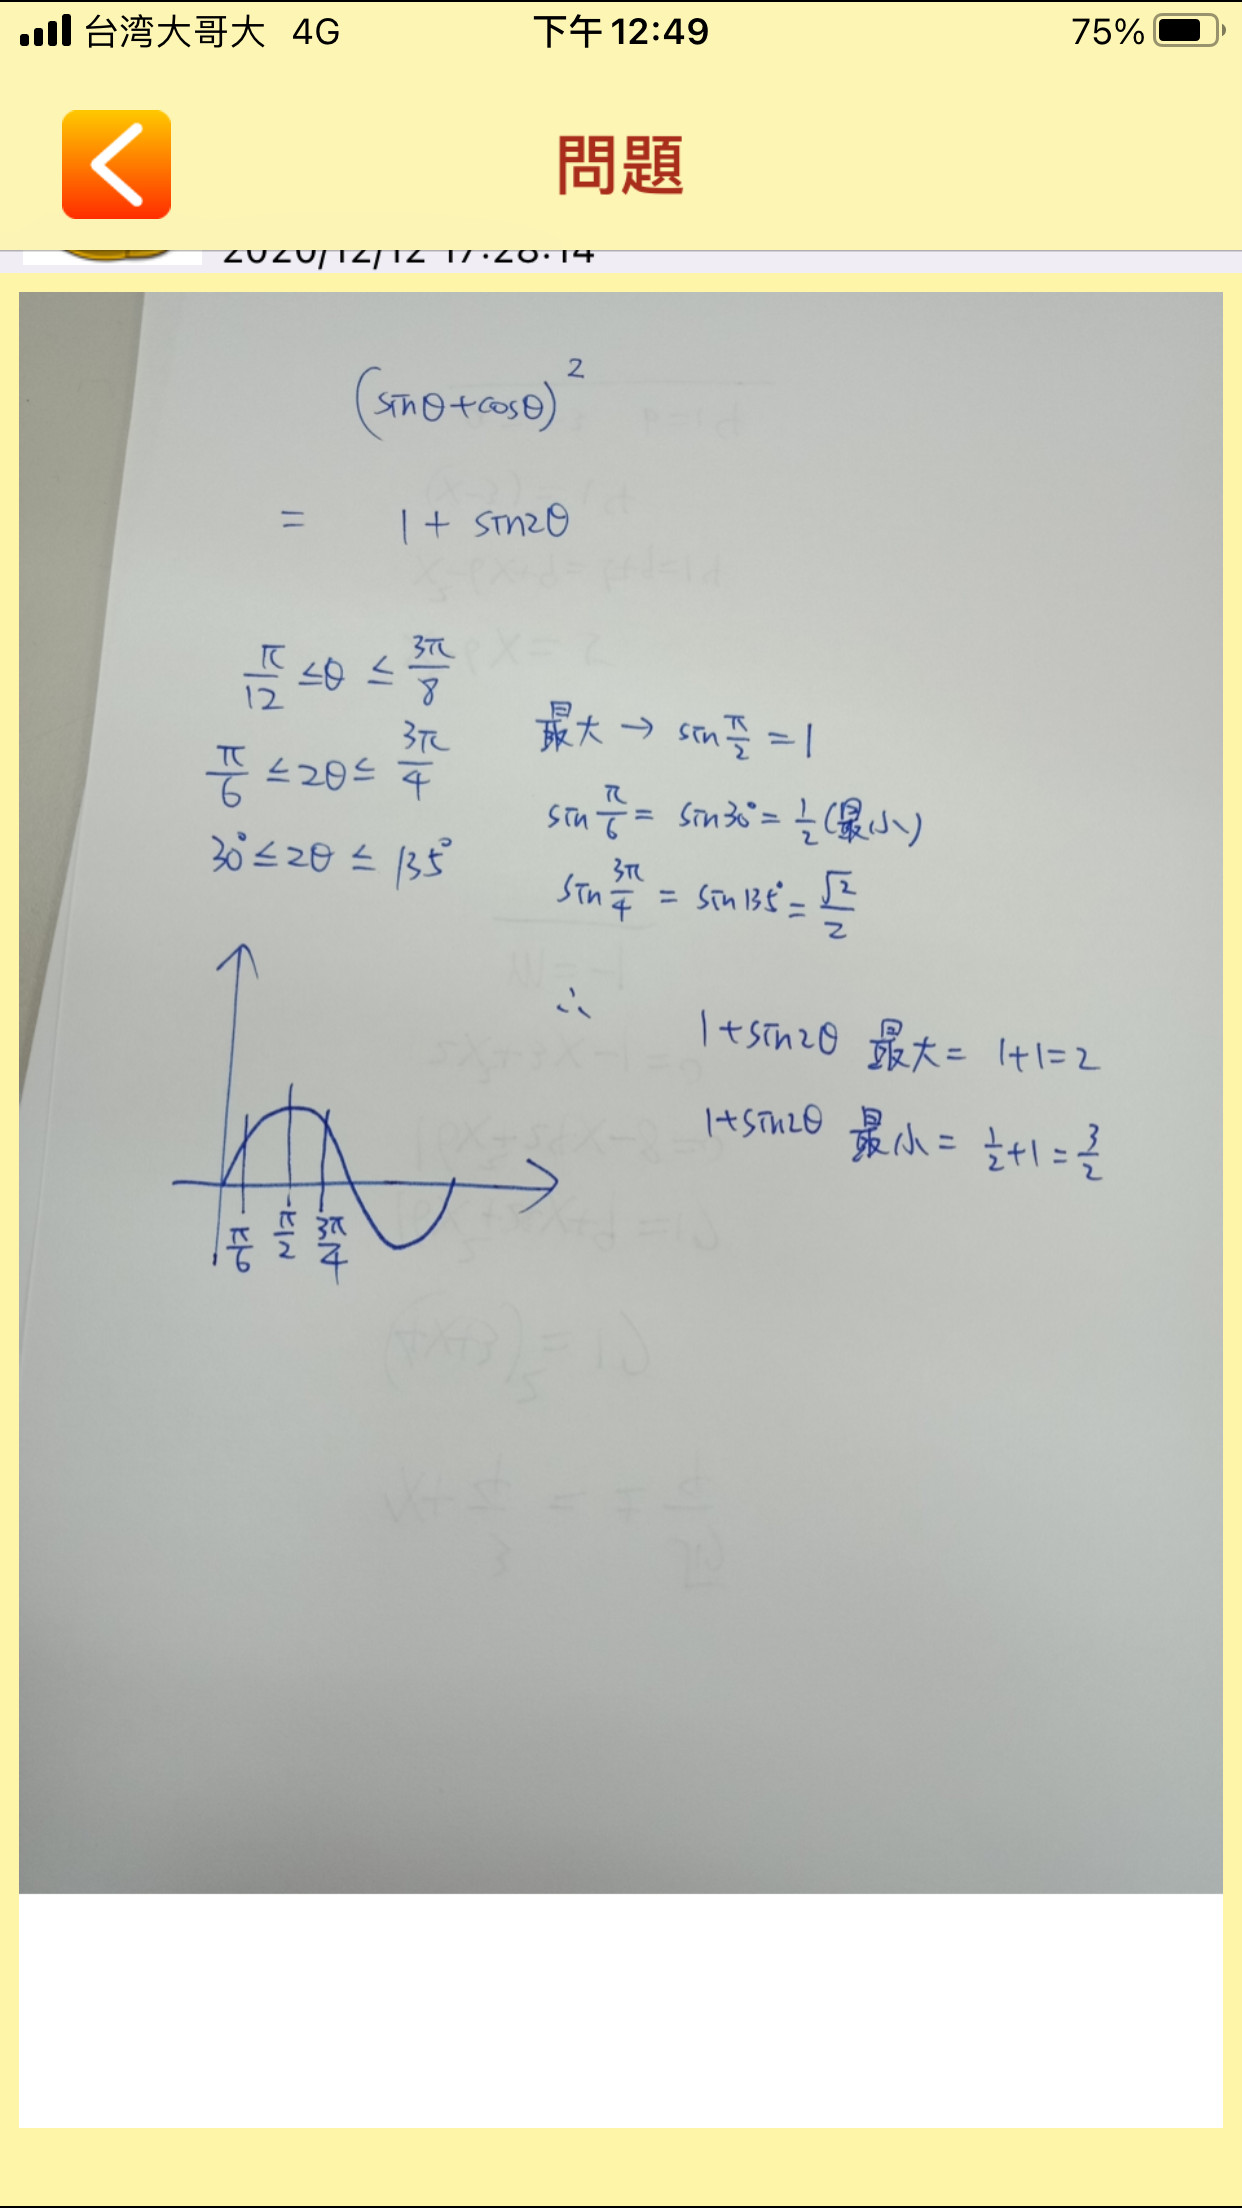 台湾大哥大 4G 下午12:49 75%
問題
2020/12/12 17:28:14
(sinθ+cosθ)²
= 1 + sin2θ
π/12 ≤θ ≤ 3π/8
π/6 ≤2θ≤ 3π/4
30°≤2θ ≤ 135°
最大 → sin π/2 = 1
sin π/6 = sin30° = 1/2 (最小)
sin 3π/4 = sin135° = √2/2
∴ 1+sin2θ 最大 = 1+1=2
1+sin2θ 最小 = 1/2+1 = 3/2
π/6 π/2 3π/4